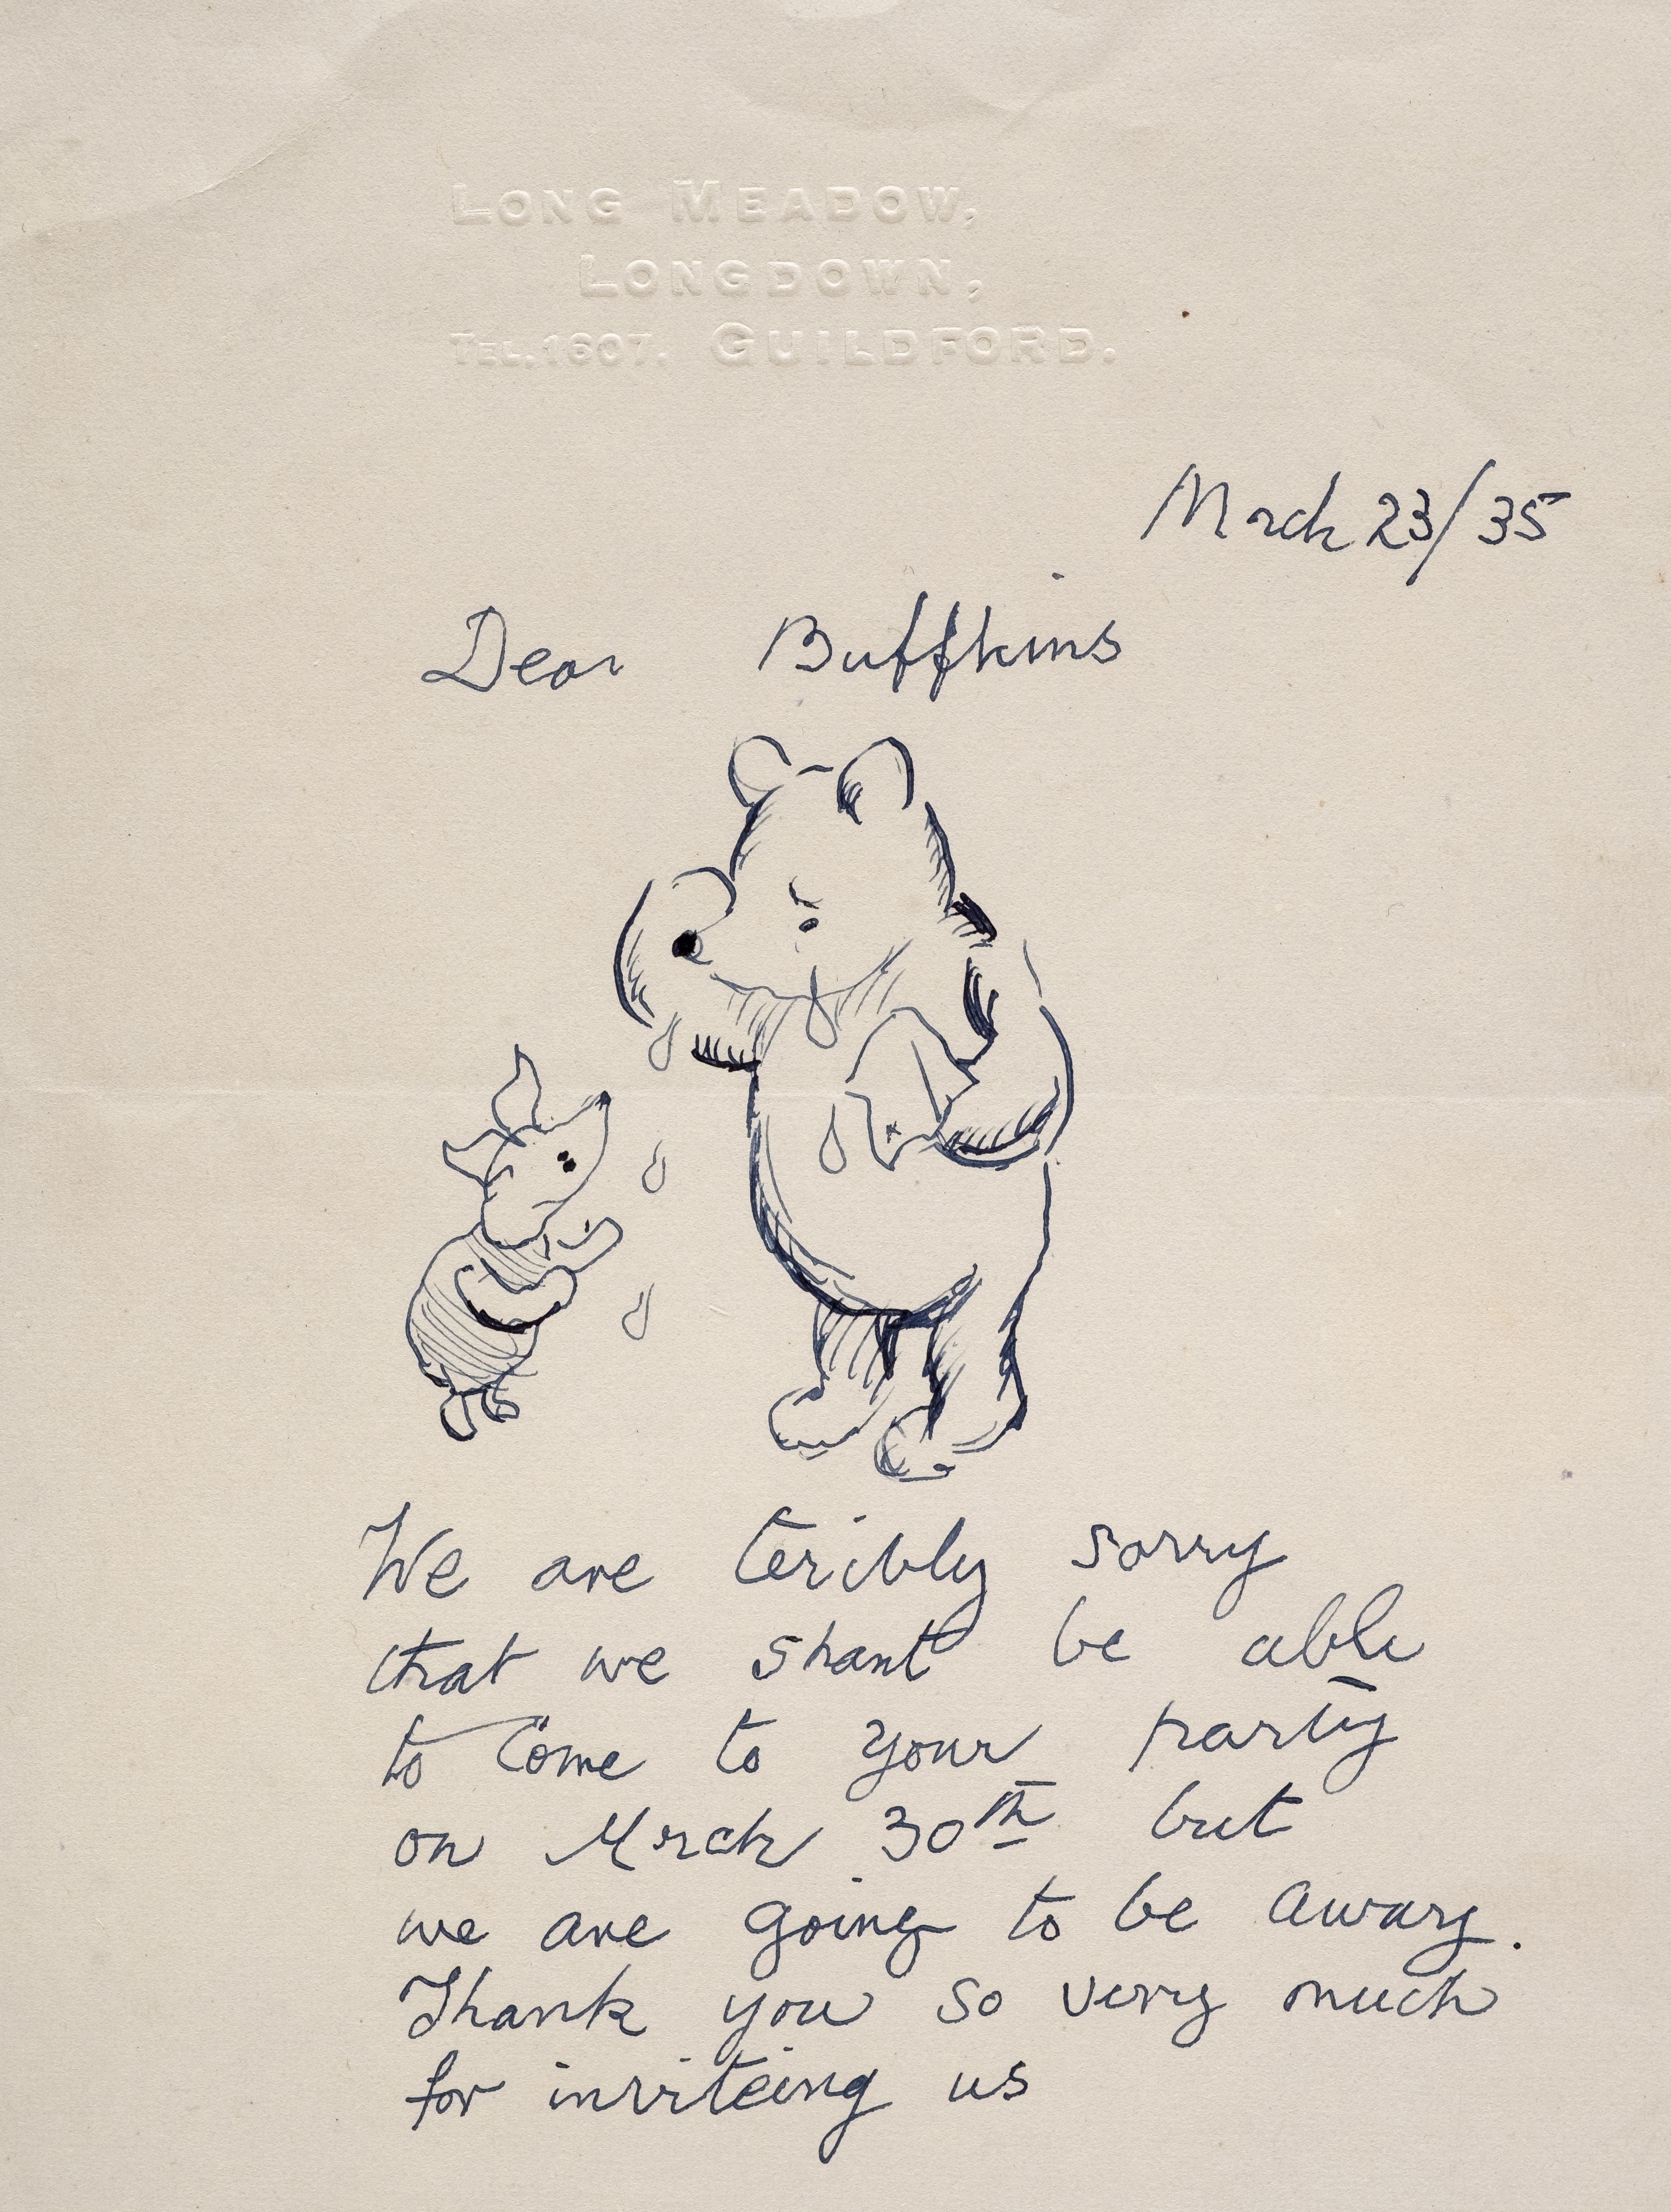 LONG MEADOW,
LONGDOWN,
TEL. 1607. GUILDFORD.
Mrch 23/35
Dear Buffkins
We are teribly sorry
that we shant be able
to come to your party
on Mrch 30th but
we are going to be away.
Thank you so very much
for inviteing us